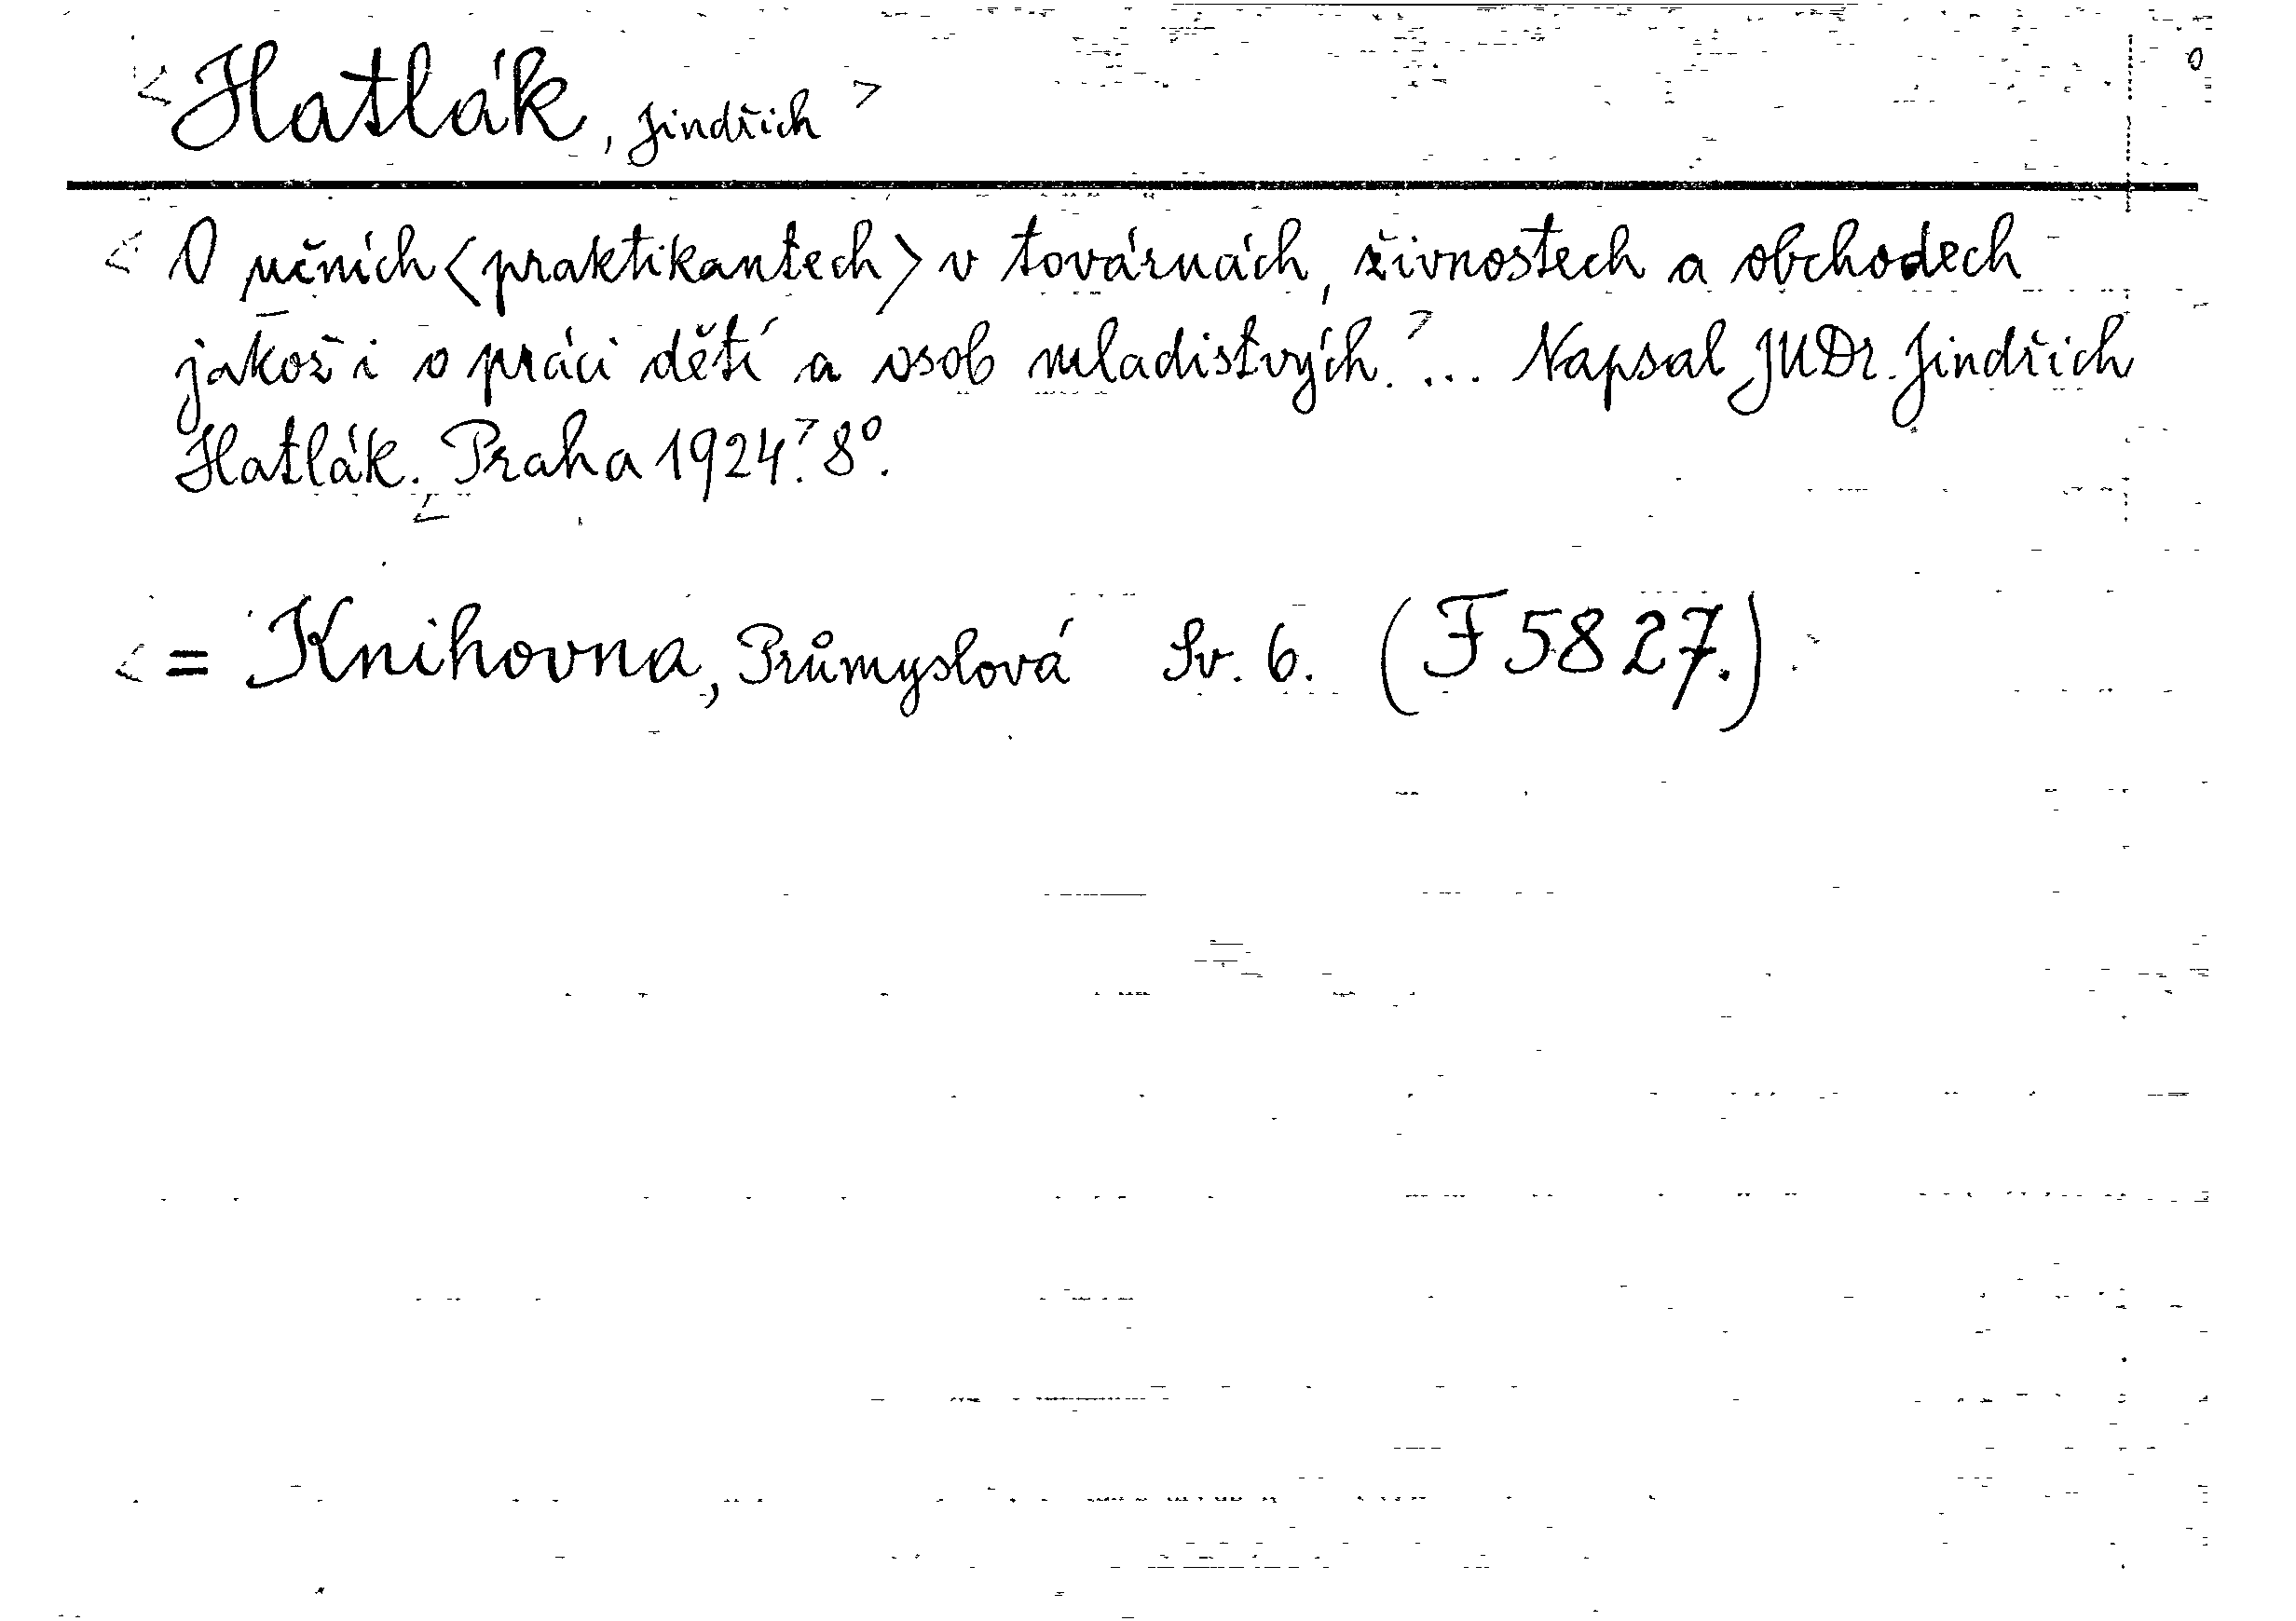 <Hatlák, Jindřich>
O učních <praktikantech> v továrnách, živnostech a obchodech
jakož i o práci dětí a osob mladistvých. ... Napsal JUDr. Jindřich
Hatlák. Praha 1924. 8°.
= Knihovna, Průmyslová Sv. 6. (F 5827.)